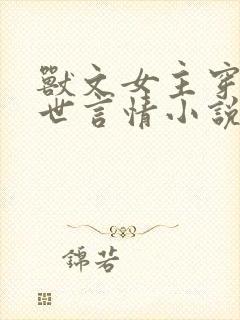 獸文女主穿
世言情小說
錦若